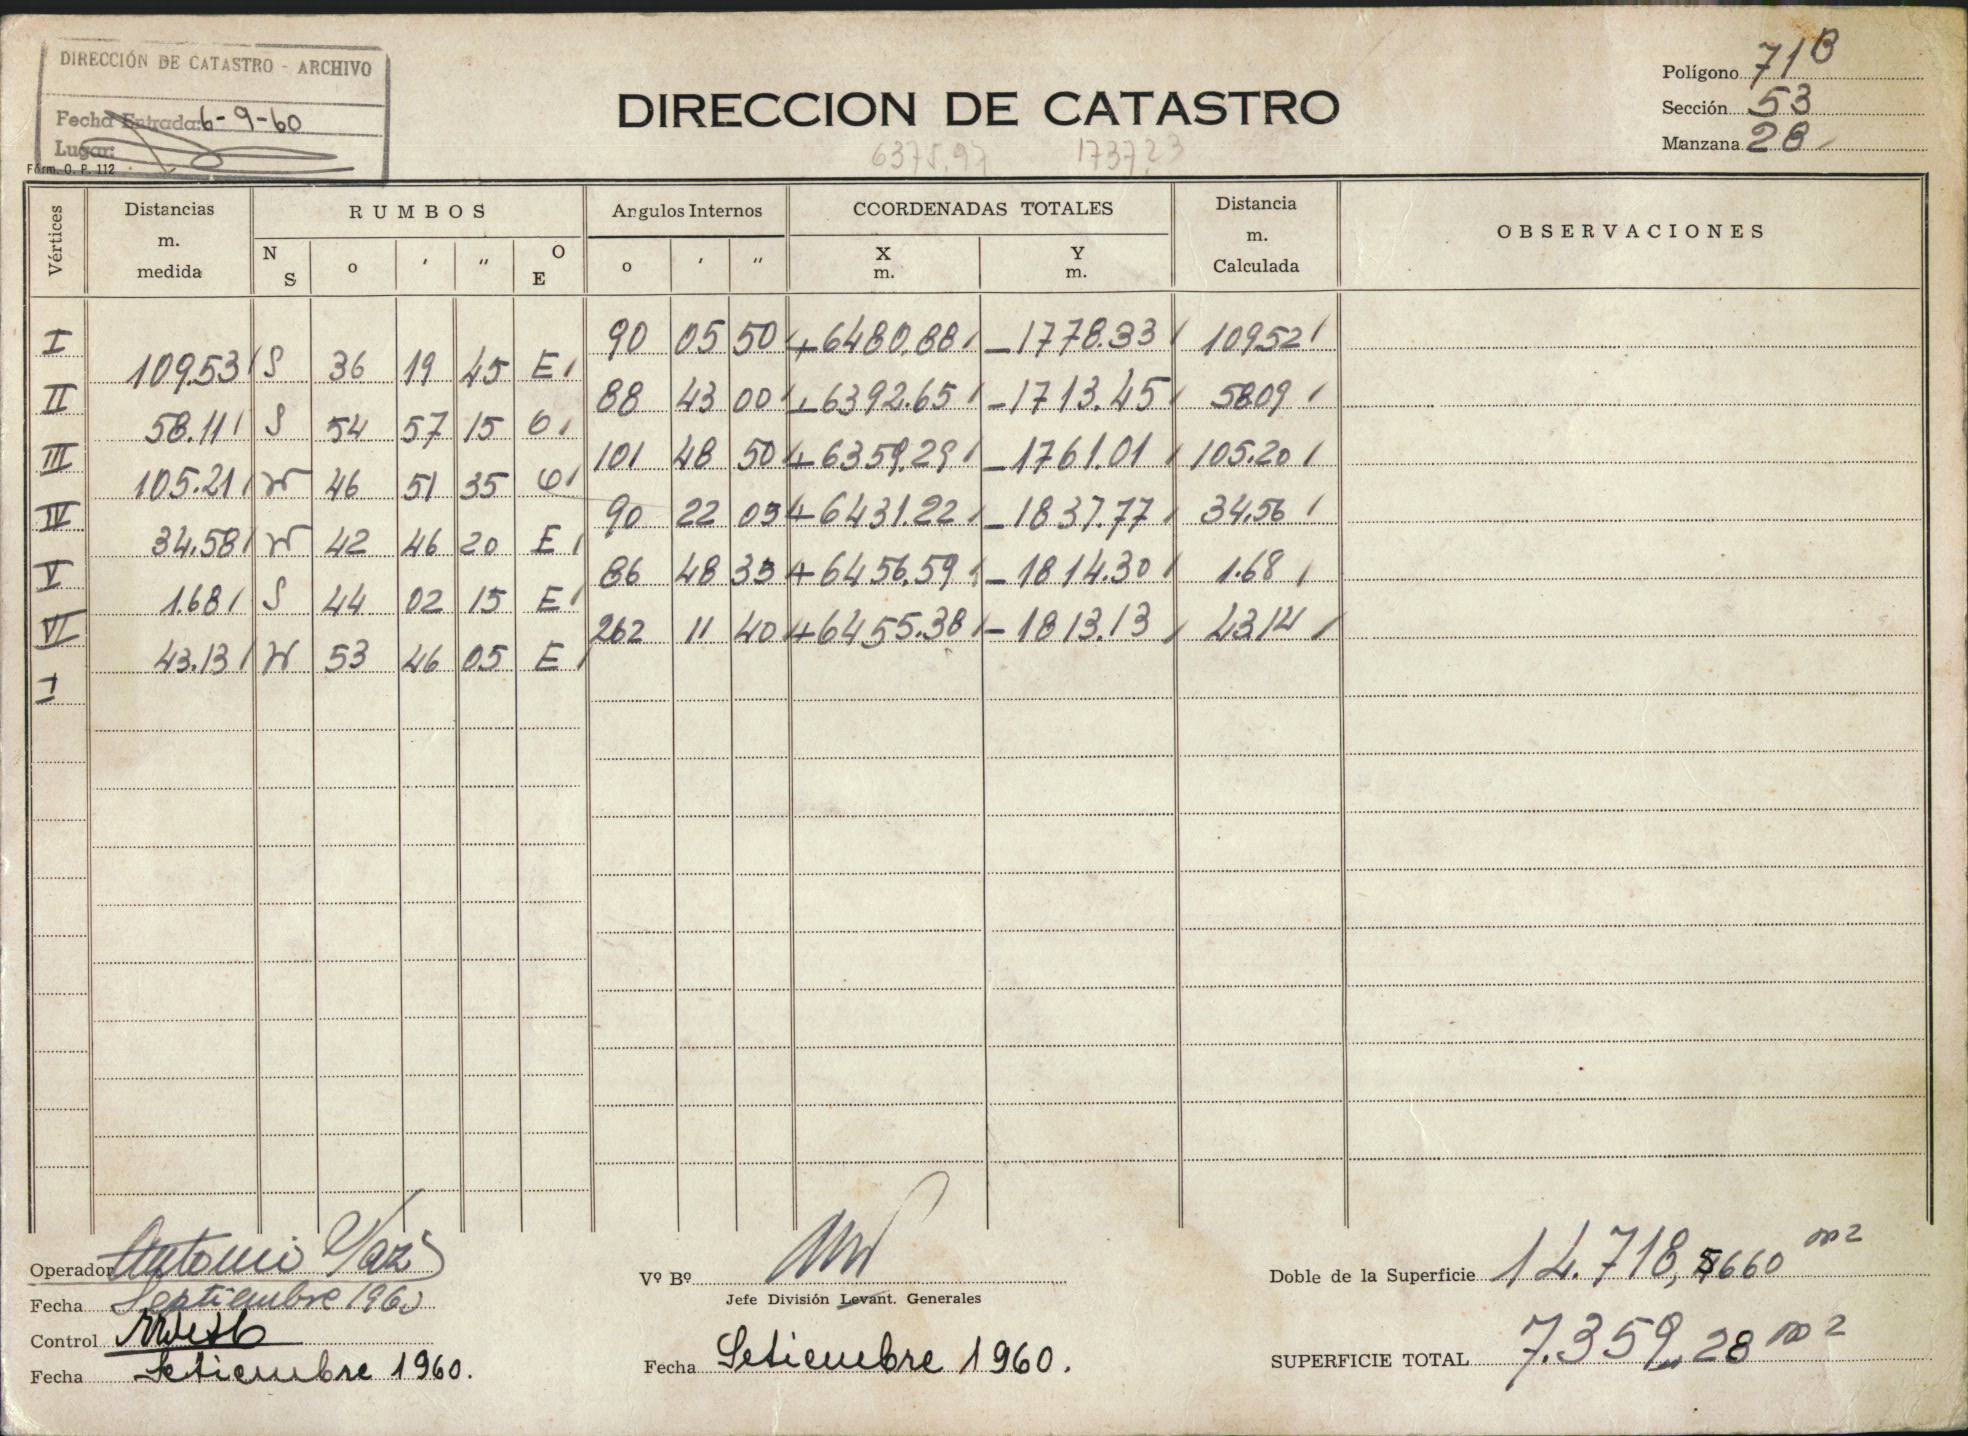 DIRECCIÓN DE CATASTRO - ARCHIVO
Fecha Entrada: 6-9-60
Lugar:
Fórm. O. P. 112
DIRECCION DE CATASTRO
6375.97 1737.23
Polígono 71B
Sección 53
Manzana 28
Vértices
Distancias m. medida
RUMBOS
N S o ' " O E
Angulos Internos
o ' "
COORDENADAS TOTALES
X m. Y m.
Distancia m. Calculada
OBSERVACIONES
I 90 05 50 +6480.88 -1778.33 109.52
109.53 S 36 19 45 E
II 88 43 00 +6392.65 -1713.45 58.09
58.11 S 54 57 15 O
III 101 48 50 +6359.29 -1761.01 105.20
105.21 N 46 51 35 O
IV 90 22 05 +6431.22 -1837.77 34.56
34.58 N 42 46 20 E
V 86 48 35 +6456.59 -1814.30 1.68
1.68 S 44 02 15 E
VI 262 11 40 +6455.38 -1813.13 43.14
43.13 N 53 46 05 E
I
Operador Antonio
Fecha Septiembre 1960
Control
Fecha Setiembre 1960.
Vº Bº
Jefe División Levant. Generales
Fecha Setiembre 1960.
Doble de la Superficie 14.718,5660 m2
SUPERFICIE TOTAL 7.359,28 m2